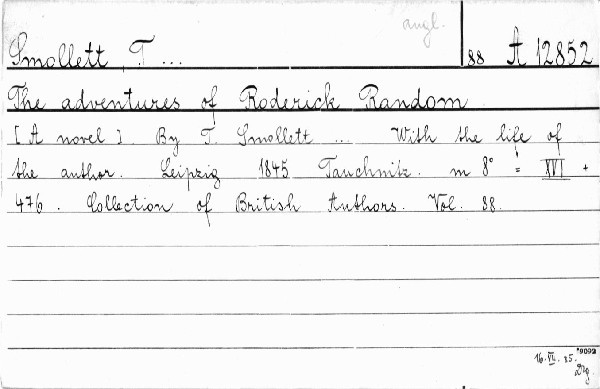 angl.
Smollett, T ... 88 A 12852
The adventures of Roderick Random
[A novel]. By T. Smollett ... With the life of
the author. Leipzig 1845 Tauchnitz. m 8° : XVI +
476. Collection of British Authors. Vol. 88.
*9092
16.VII.35.